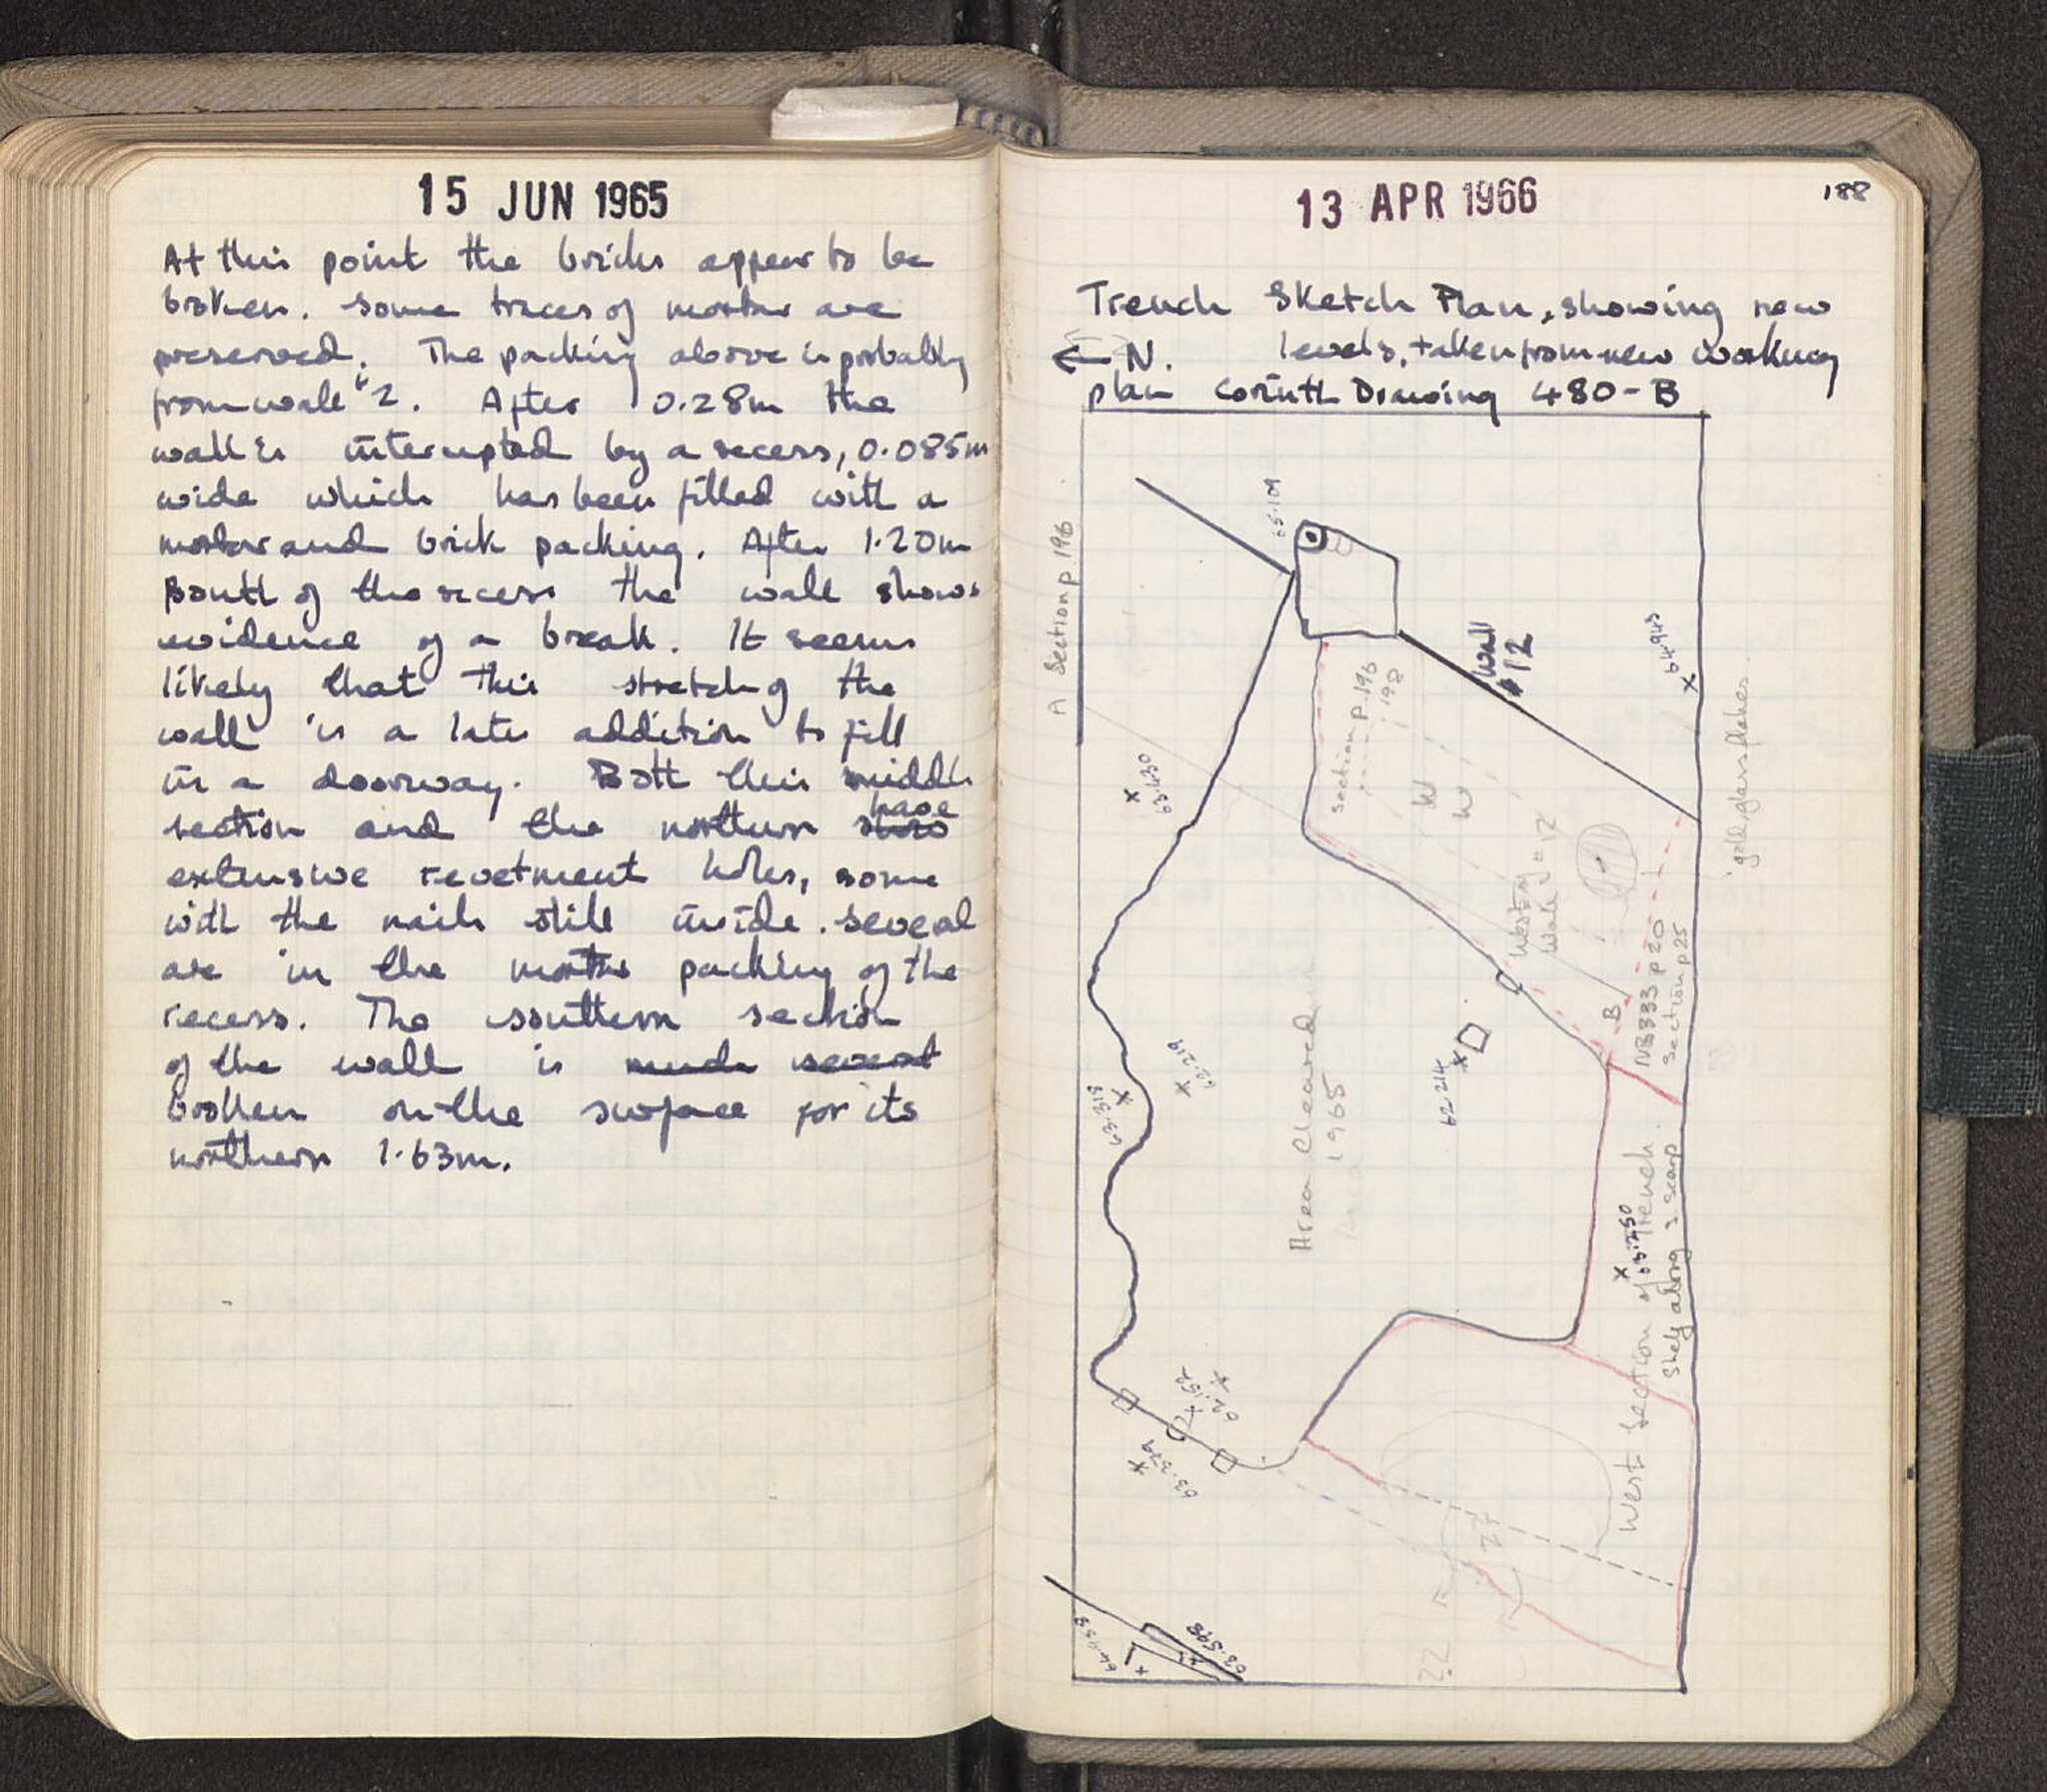 15 JUN 1965
At this point the bricks appear to be
broken. Some traces of mortar are
preserved. The packing above is probably
from wall #2. After 0.28m the
wall is interrupted by a recess, 0.085m
wide which has been filled with a
mortar and brick packing. After 1.20m
South of the recess the wall shows
evidence of a break. It seems
likely that this stretch of the
wall is a later addition to fill
in a doorway. Both this middle
section and the northern have
extensive revetment holes, some
with the nails still inside. Several
are in the mortar packing of the
recess. The southern section
of the wall is much several
broken on the surface for its
northern 1.63m.
13 APR 1966
188
Trench Sketch Plan, showing new
← N. levels, taken from new working
plan Corinth Drawing 480-B
A Section p. 196
65.109
Wall
#12
64.943
Section p. 196
198
63.430
W
W
gold glass flakes
West of
Wall #12
B
NB333 p20
Section p25
Area Cleared
1965
62.219
62.214
63.313
West Section of Trench
Shelf along scarp
63.350
63.379
64.453
63.598
22